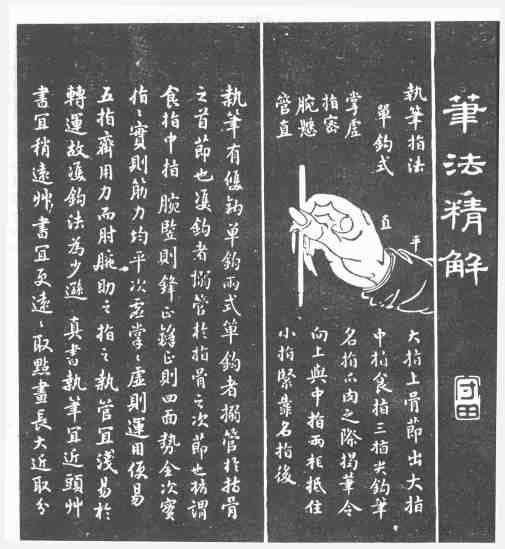 筆法精解
執筆指法
單鈎式
掌虛
指密
腕懸
管直
平
直
大指上骨節出大指
中指食指三指尖鈎筆
名指爪肉之際揭筆令
向上與中指兩相抵住
小指緊靠名指後
執筆有雙鈎單鈎兩式單鈎者搦管於指骨
之首節也雙鈎者搦管於指骨之次節也謂
食指中指腕豎則鋒正鋒正則四面勢全次實
指〻實則筋力均平次虛掌〻虛則運用便易
五指齊用力而肘腕助之指之執管宜淺易於
轉運故雙鈎法為少遜真書執筆宜近頭艸
書宜稍遠艸書宜更遠〻取點畫長大近取分